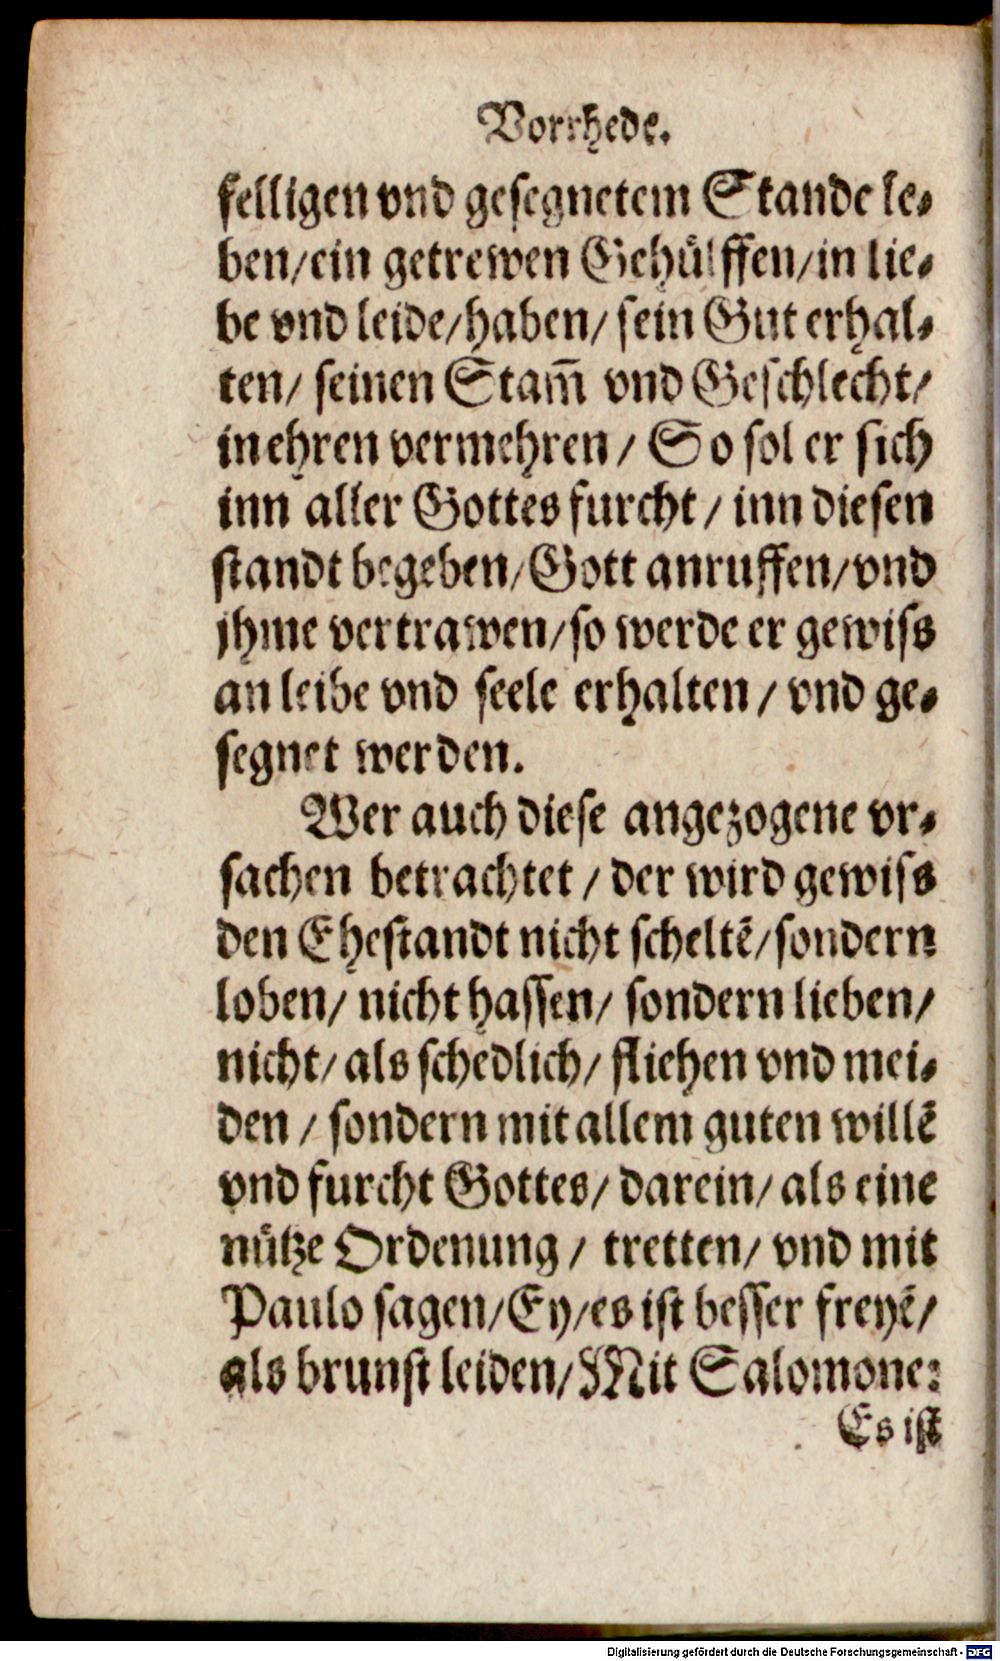 Vorrhede.
felligen vnd gesegnetem Stande le⸗
ben/ein getrewen Gehuͤlffen/in lie⸗
be vnd leide/haben/ sein Gut erhal⸗
ten/ seinen Stam̃ vnd Geschlecht/
in ehren vermehren/ So sol er sich
inn aller Gottes furcht/ inn diesen
standt begeben/Gott anruffen/vnd
jhme vertrawen/so werde er gewiss
an leibe vnd seele erhalten/ vnd ge⸗
segnet werden.
Wer auch diese angezogene vr⸗
sachen betrachtet/ der wird gewiss
den Ehestandt nicht scheltẽ/sondern
loben/ nicht hassen/ sondern lieben/
nicht/ als schedlich/ fliehen vnd mei⸗
den/ sondern mit allem guten willẽ
vnd furcht Gottes/ darein/ als eine
nuͤtze Ordenung/ tretten/ vnd mit
Paulo sagen/Ey/es ist besser freyẽ/
als brunst leiden/Mit Salomone:
Es ist
Digitalisierung gefördert durch die Deutsche Forschungsgemeinschaft - DFG